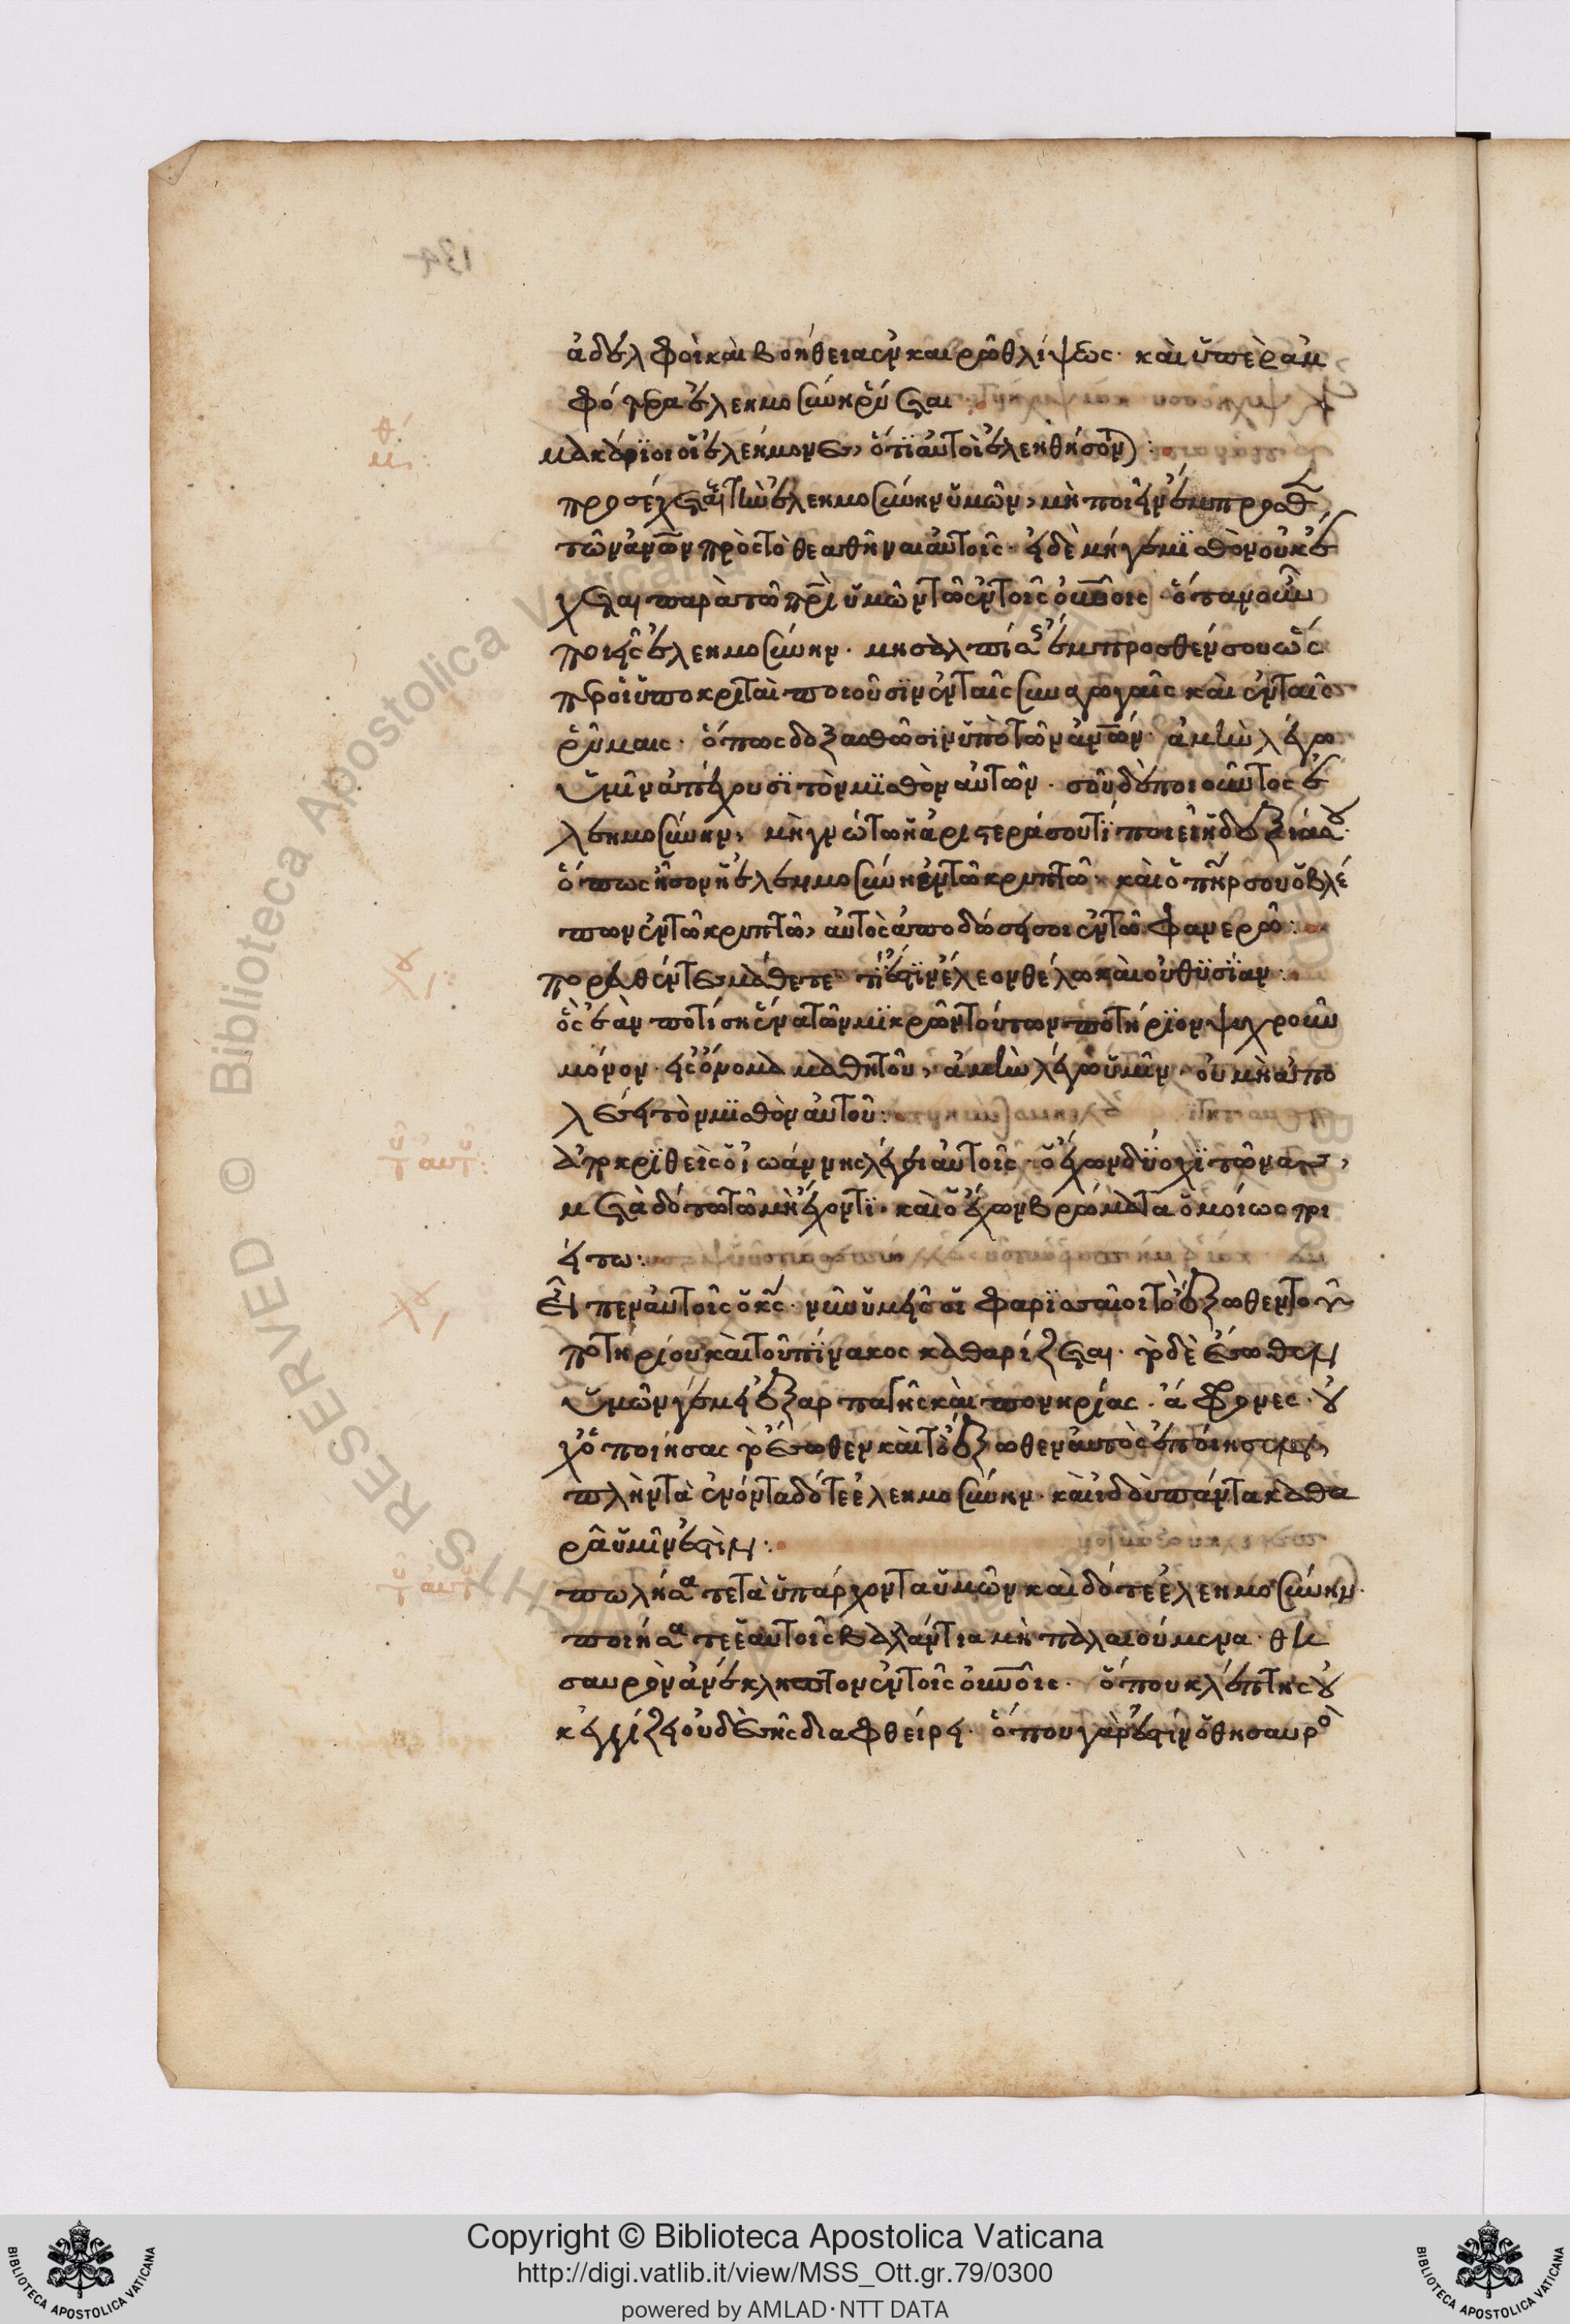 ἀδελφοὶ καὶ βοήθεια ἐν καιρῶ θλίψεως· καὶ ὑπὲρ ἀμ
φότερα ἐλεημοσύνη ῥύσεται
μακάριοι οἱ ἐλεήμονες, ὅτι αὐτοὶ ἐλεηθήσον(ται):
προσέχεται τὴν ἐλεημοσύνην ὑμῶν, μὴ ποιεῖν ἔμπροσθ
τῶν ἀνων πρὸς τὸ θεαθῆναι αὐτοῖς· εἰ δὲ μήγε μισθὸν οὐκ ἔ
χεται παρὰ τῶ πρὶ ὑμῶν τῶ ἐν τοῖς οὐνοῖς· ὅταν οὖν
ποιῆς ἐλεημοσύνην· μὴ σαλπίσης ἔμπροσθέν σου ὥς
περ οἱ ὑποκριταὶ ποιοῦσιν ἐν ταῖς συναγωγαῖς καὶ ἐν ταῖς
ῥύμαις· ὅπως δοξασθῶσιν ὑπὸ τῶν ἀνων· ἀμὴν λέγω
ὑμῖν ἀπέχουσι τὸν μισθὸν αὐτῶν· σοῦ δὲ ποιοῦντος ἐ
λεημοσύνην, μὴ γνώτω ἡ ἀριστερά σου τί ποιεῖ ἡ δεξιά σου·
ὅπως ἦ σου ἡ ἐλεημοσύνη ἐν τῶ κρυπτῶ· καὶ ὁ πήρ σου ὁ βλέ
πων ἐν τῶ κρυπτῶ, αὐτὸς ἀποδώσει σοι ἐν τῶ φανερῶ:
πορευθέντες μάθετε τί ἐστιν ἔλεον θέλω καὶ οὐ θυσίαν:
ὃς ἐὰν ποτίση ἕνα τῶν μικρῶν τούτων ποτήριον ψυχροῦ
μόνον· εἰς ὄνομα μαθητοῦ, ἀμὴν λέγω ὑμῖν· οὐ μὴ ἀπο
λέσει τὸν μισθὸν αὐτοῦ:
ἀποκριθεὶς ὁ ἰωάννης λέγει αὐτοῖς· ὁ ἔχων δύο χιτῶνας,
μεταδότω τῶ μὴ ἔχοντι· καὶ ὁ ἔχων βρώματα ὁμοίως ποι
είτω:
Εἶπεν αὐτοῖς ὁ κς· νῦν ὑμεῖς οἱ φαρισαῖοι τὸ ἔξωθεν τοῦ
ποτηρίου καὶ τοῦ πίνακος καθαρίζεται· τὸ δὲ ἔσωθεν
ὑμῶν γέμει ἐξ ἁρπαγῆς καὶ πονηρίας· ἄφρονες· οὐ
χ ὁ ποιήσας τὸ ἔσωθεν καὶ τὸ ἔξωθεν αὐτὸς ἐποίησεν,
πλὴν τὰ ἐνόντα δότε ἐλεημοσύνην· καὶ ἰδοὺ πάντα καθα
ρὰ ὑμῖν ἐστιν:
πωλήσατε τὰ ὑπάρχοντα ὑμῶν καὶ δότε ἐλεημοσύνην·
ποιήσατε ἑαυτοῖς βαλάντια μὴ παλαιούμενα· θη
σαυρὸν ἀνέκλειπτον ἐν τοῖς οὐνοῖς· ὅπου κλέπτης οὐ
κ ἐγγίζει οὐδὲ σὴς διαφθείρει· ὅπου γὰρ ἐστὶν ὁ θησαυρὸ
Copyright © Biblioteca Apostolica Vaticana
http://digi.vatlib.it/view/MSS_Ott.gr.79/0300
powered by AMLAD·NTT DATA